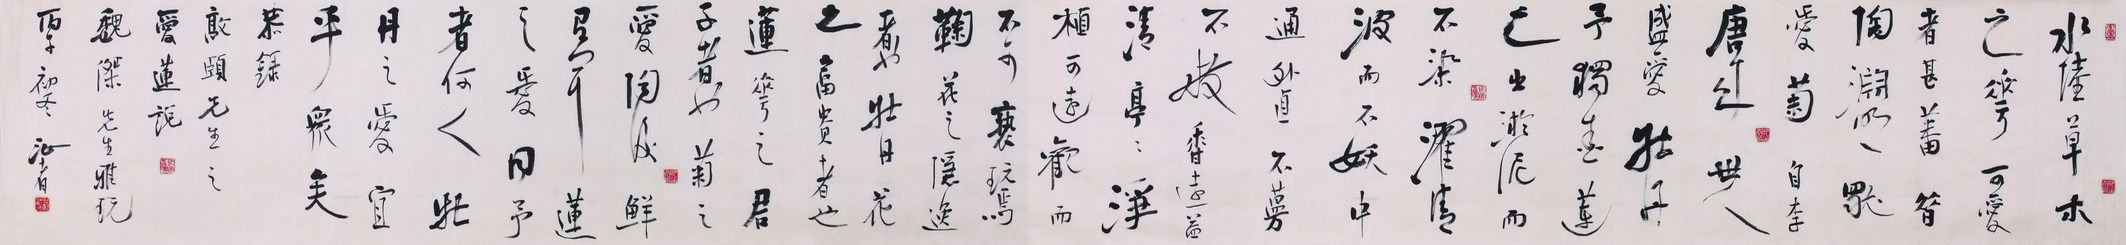 水陸草木
之華可愛
者甚蕃晉
陶淵明獨
愛菊自李
唐來世人
盛愛牡丹
予獨愛蓮
之出淤泥而
不染濯清
波而不妖中
通外直不蔓
不枝香遠益
清亭〻淨
植可遠觀而
不可褻玩焉
鞠花之隱逸
者也牡丹花
之富貴者也
蓮華之君
子者也菊之
愛陶後鮮
有聞蓮
之愛同予
者何人牡
丹之愛宜
乎眾矣
恭錄
敦頤先生之
愛蓮說
魏傑先生雅玩
初冬